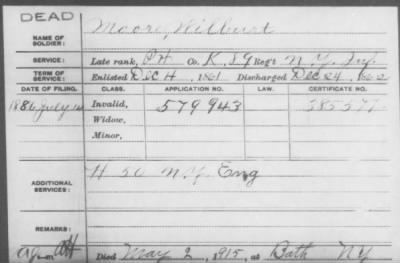 DEAD
NAME OF SOLDIER: Moore, Wilburt
SERVICE: Late rank, Pvt Co. K, 89 Reg't N.Y. Inf.
TERM OF SERVICE: Enlisted Dec 4, 1861 Discharged Dec 24, 1862
DATE OF FILING. CLASS. APPLICATION NO. LAW. CERTIFICATE NO.
1886 July Invalid, 579943 385577
Widow,
Minor,
ADDITIONAL SERVICES: H 50 N.Y. Eng
REMARKS:
Died May 2, 1915, at Bath NY